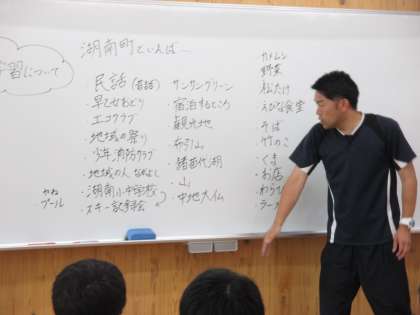 学習について
湖南町といえば…
民話(昔話)
・早乙女おどり
・エコクラブ
・地域の祭り
・少年消防クラブ
・地域の人 なかよし
・湖南小中学校
・スキー記録会
やね
プール
サンサングリーン
・宿泊するところ
・観光地
・布引山
・猪苗代湖
・山
・中地大仏
カメムシ
野菜
松たけ
えびな食堂
そば
竹のこ
くま
お店
わらび